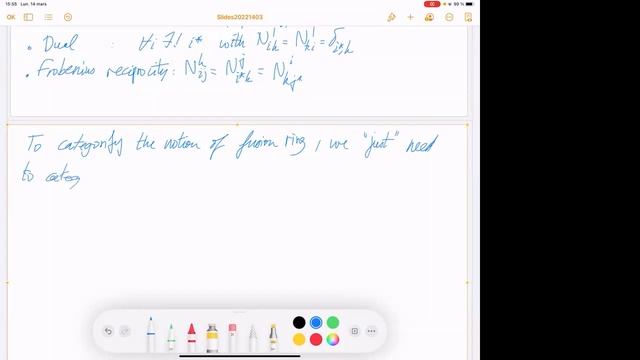 15:55 Lun. 14 mars
99 %
OK
Slides20221403
• Dual : ∀i ∃! i* with N_{ik}^1 = N_{ki}^1 = δ_{i*,k}
• Frobenius reciprocity : N_{ij}^k = N_{i*k}^j = N_{kj*}^i
To categorify the notion of fusion ring, we "just" need
to categ